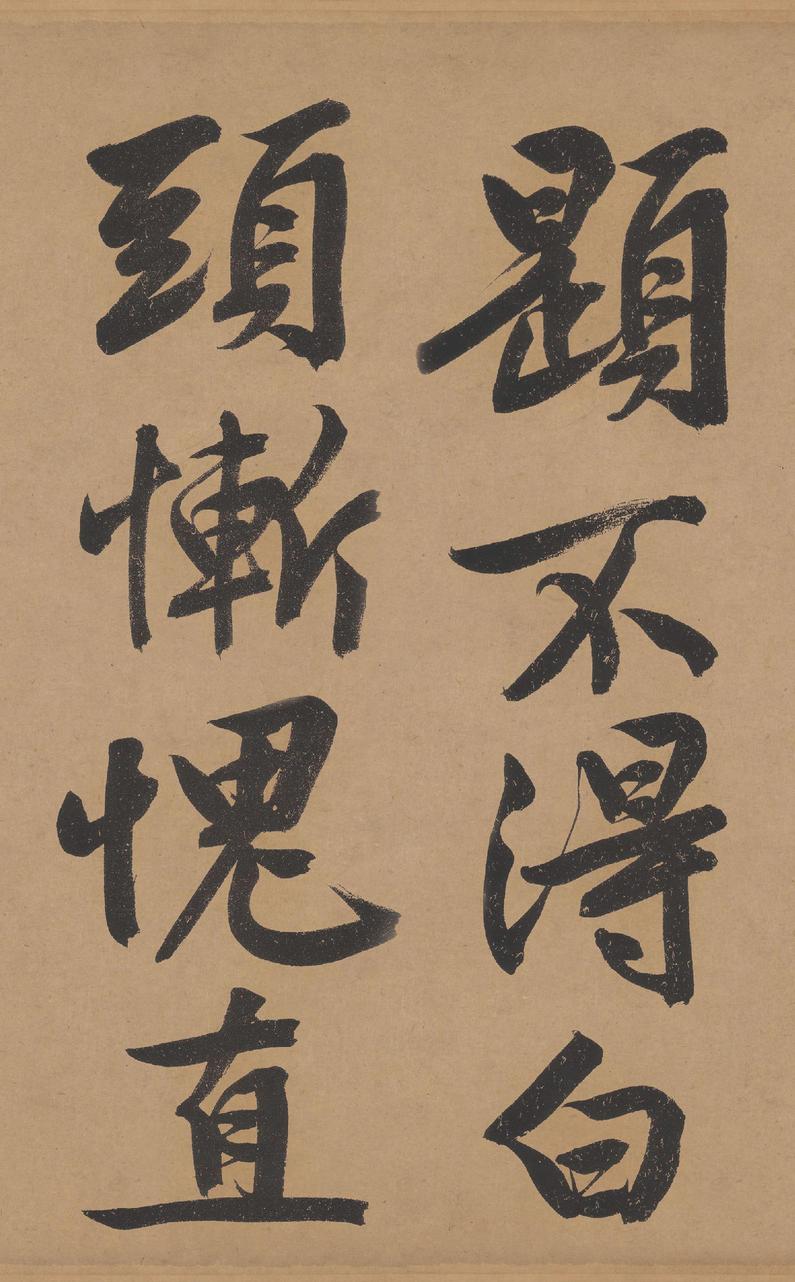 題不得白
頭慚愧直